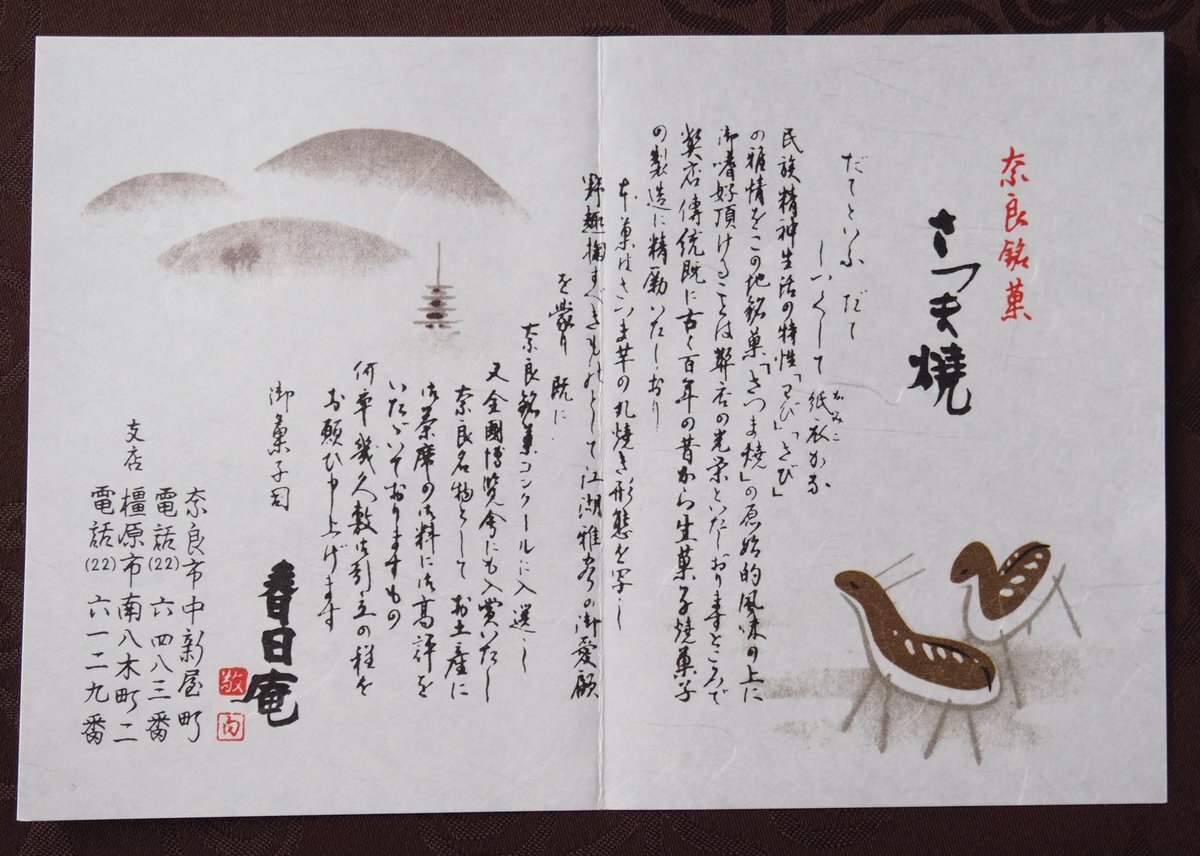 奈良銘菓
さつま燒
だてといふ だて
しつくして 紙衣かな
かみこ
民族精神生活の特性「わび」「さび」
の雅情をこの地銘菓「さつま燒」の原始的風味の上に
御嗜好頂けることは弊店の光栄といたしおりますところで
弊店傳統既に古く百年の昔から生菓子燒菓子
の製造に精勵いたしおり
本菓はさつま芋の丸燒き形態を写し
野趣掬すべきものとして江湖雅客の御愛顧
を蒙り 既に
奈良銘菓コンクールに入選し
又全國博覧会にも入賞いたし
奈良名物として お土産に
御茶席の御料に御高評を
いたゞいておりますもの
何卒幾久敷御引立の程を
お願ひ申し上げます
御菓子司
春日庵
敬白
奈良市中新屋町
電話(22)六四八三番
支店 橿原市南八木町二
電話(22)六一二九番